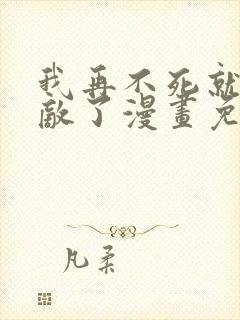 我再不死就
敵了漫畫免
凡柔